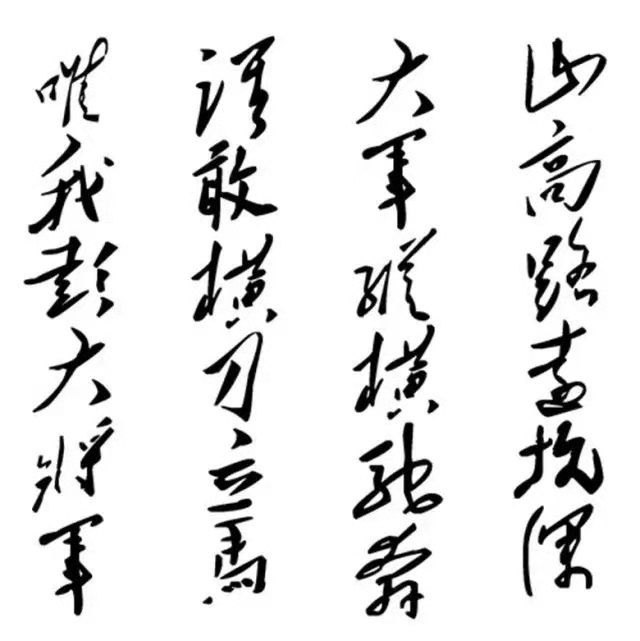 山高路遠坑深
大軍縱橫馳奔
誰敢橫刀立馬
唯我彭大將軍